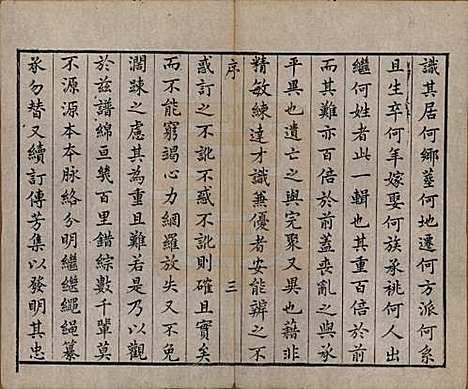 識其居何鄉塟何地遷何方派何系
且生卒何年嫁娶何族承祧何人出
繼何姓者此一輯也其重百倍於前
而其難亦百倍於前蓋喪亂之與
平異也遺亡之與完聚又異也藉非
精敏練達才識兼優者安能辨之不
序
三
惑訂之不訛不惑不訛則確且實矣
而不能窮竭心力網羅放失又不免
濶踈之慮其為重且難若是乃以觀
於兹譜綿亘㡬百里錯綜數千軰莫
不源源本本脉絡分明繼繼繩繩纂
承勿替又續訂傳芳集以發明其忠